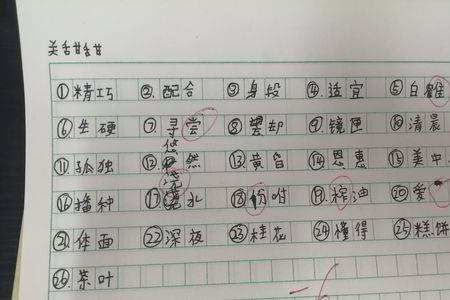 ①精巧 ②配合 ③身段 ④适宜 ⑤白鹤
⑥生硬 ⑦寻常 ⑧望却 ⑨镜匣 ⑩清晨
⑪孤独 ⑫悠然 ⑬黄昏 ⑭恩惠 ⑮美中
⑯播种 ⑰浇水 ⑱吩咐 ⑲榨油 ⑳爱
㉑体面 ㉒深夜 ㉓桂花 ㉔懂得 ㉕糕饼
㉖茶叶